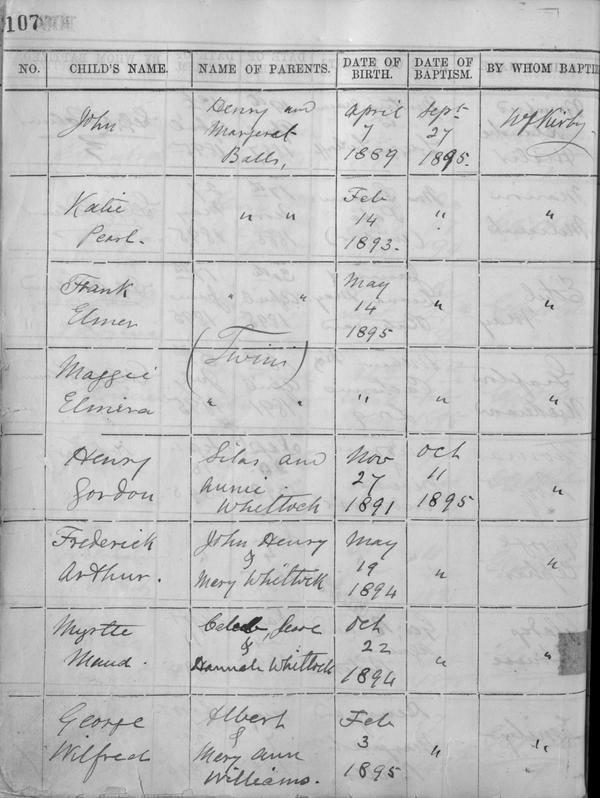 107
NO. CHILD'S NAME. NAME OF PARENTS. DATE OF BIRTH. DATE OF BAPTISM. BY WHOM BAPTI
John
Henry and
Margaret
Balls,
April
7
1889
Sept
27
1895.
WJ Kirby
Katie
Pearl.
" "
Feb
14
1893.
"
"
Frank
Elmer
" "
May
14
1895
"
"
(Twins)
Maggie
Elmira
" "
"
"
"
Henry
Gordon
Silas and
Annie
Whittock
Nov
27
1891
Oct
11
1895
"
Frederick
Arthur.
John Henry
&
Mary Whittock
May
19
1894
"
"
Myrtle
Maud.
Caleb
&
Hannah Whittock
Oct
22
1894
"
"
George
Wilfred
Albert
&
Mary Ann
Williams.
Feb
3
1895
"
"